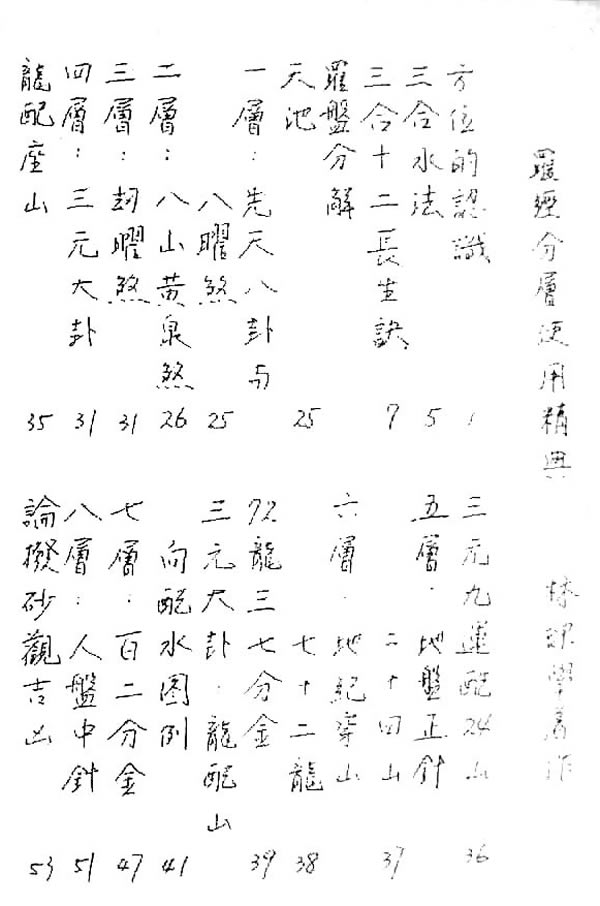 羅經分層使用精典
林 學著作
方位的認識 1
三合水法 5
三合十二長生訣 7
羅盤分解
天池 25
一層：先天八卦与
八曜煞 25
二層：八山黄泉煞 26
三層：劫曜煞 31
四層：三元大卦 31
龍配座山 35
三元九運配24山 36
五層：地盤正針
二十四山 37
六層：地紀穿山
七十二龍 38
72龍三七分金 39
三元大卦：龍配山
向配水图例 41
七層：百二分金 47
八層：人盤中針 51
論撥砂觀吉凶 53